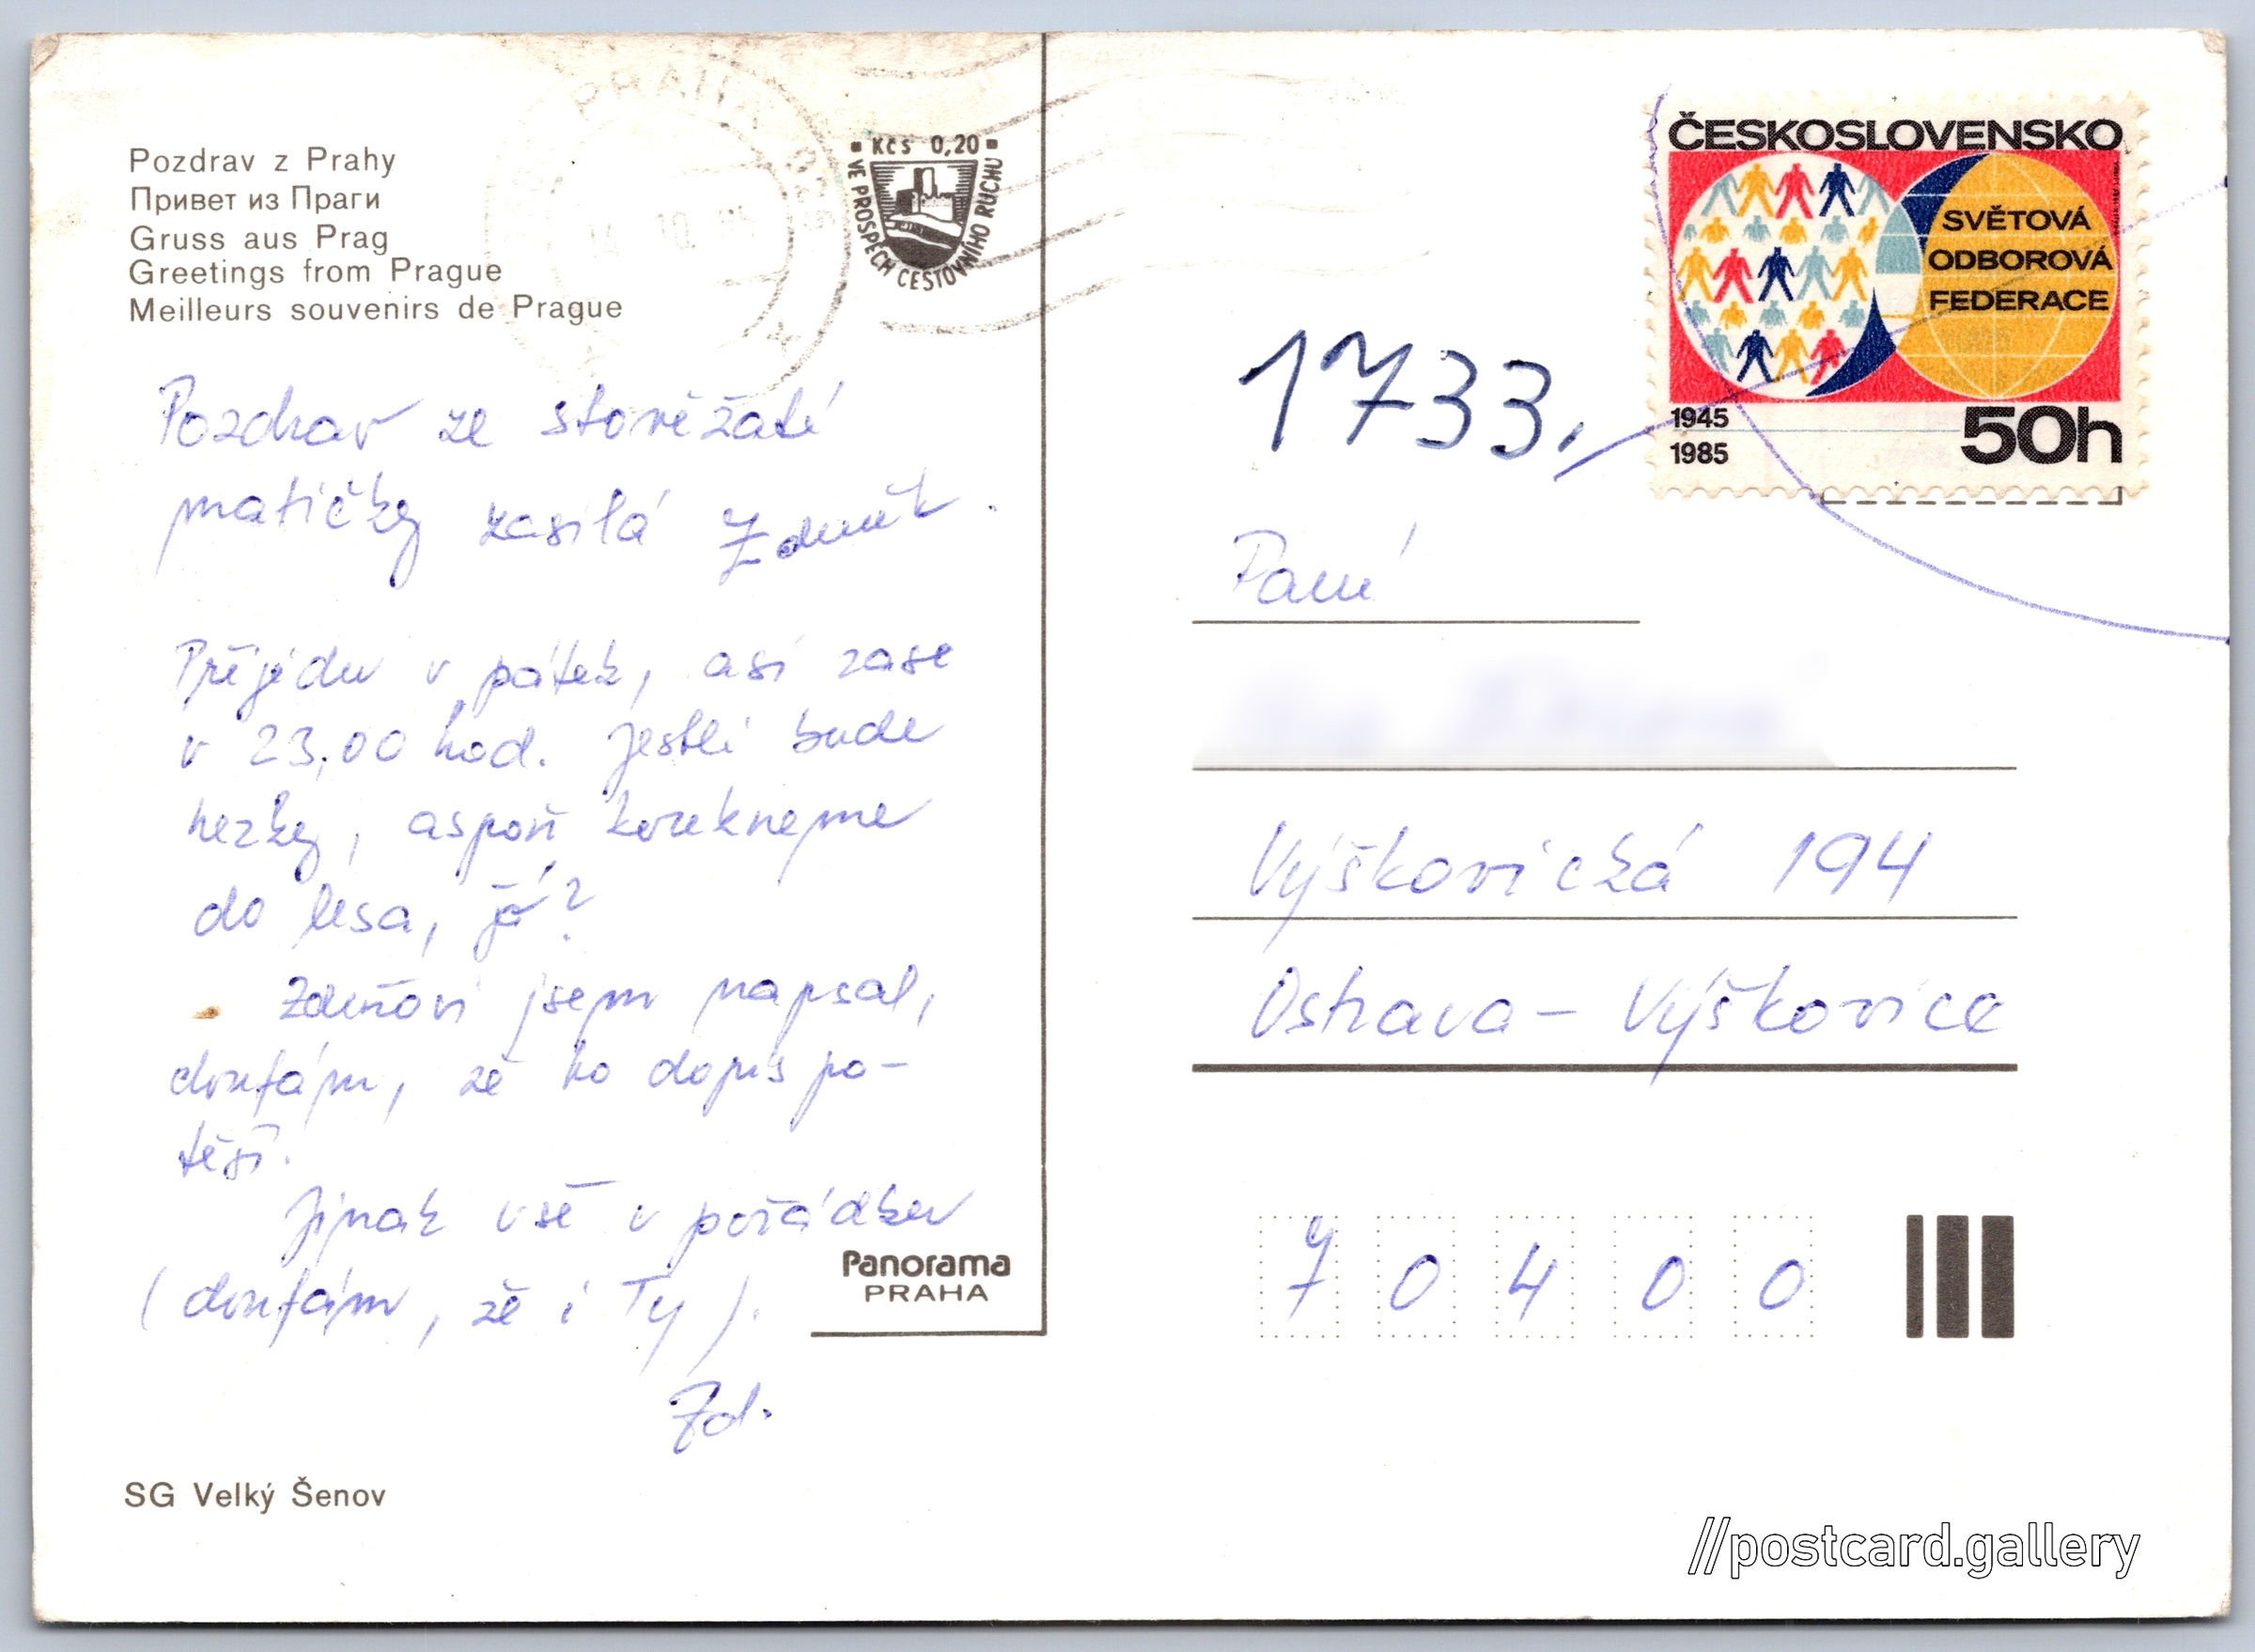 Pozdrav z Prahy
Привет из Праги
Gruss aus Prag
Greetings from Prague
Meilleurs souvenirs de Prague
PRAHA
14 10
Kčs 0,20
VE PROSPĚCH CESTOVNÍHO RUCHU
Pozdrav ze stověžaté
matičky zasílá Zdeněk.
Přijedu v pátek, asi zase
v 23,00 hod. Jestli bude
hezky, aspoň
do lesa, jo?
Zdeňovi jsem napsal,
doufám, že ho dopis po-
těší.
Jinak vše v pořádku
(doufám, že i Ty).
Zd.
Panorama
PRAHA
SG Velký Šenov
ČESKOSLOVENSKO
SVĚTOVÁ
ODBOROVÁ
FEDERACE
1945
1985
50h
1733,
Paní
Výškovická 194
Ostrava - Výškovice
7 0 4 0 0
//postcard.gallery